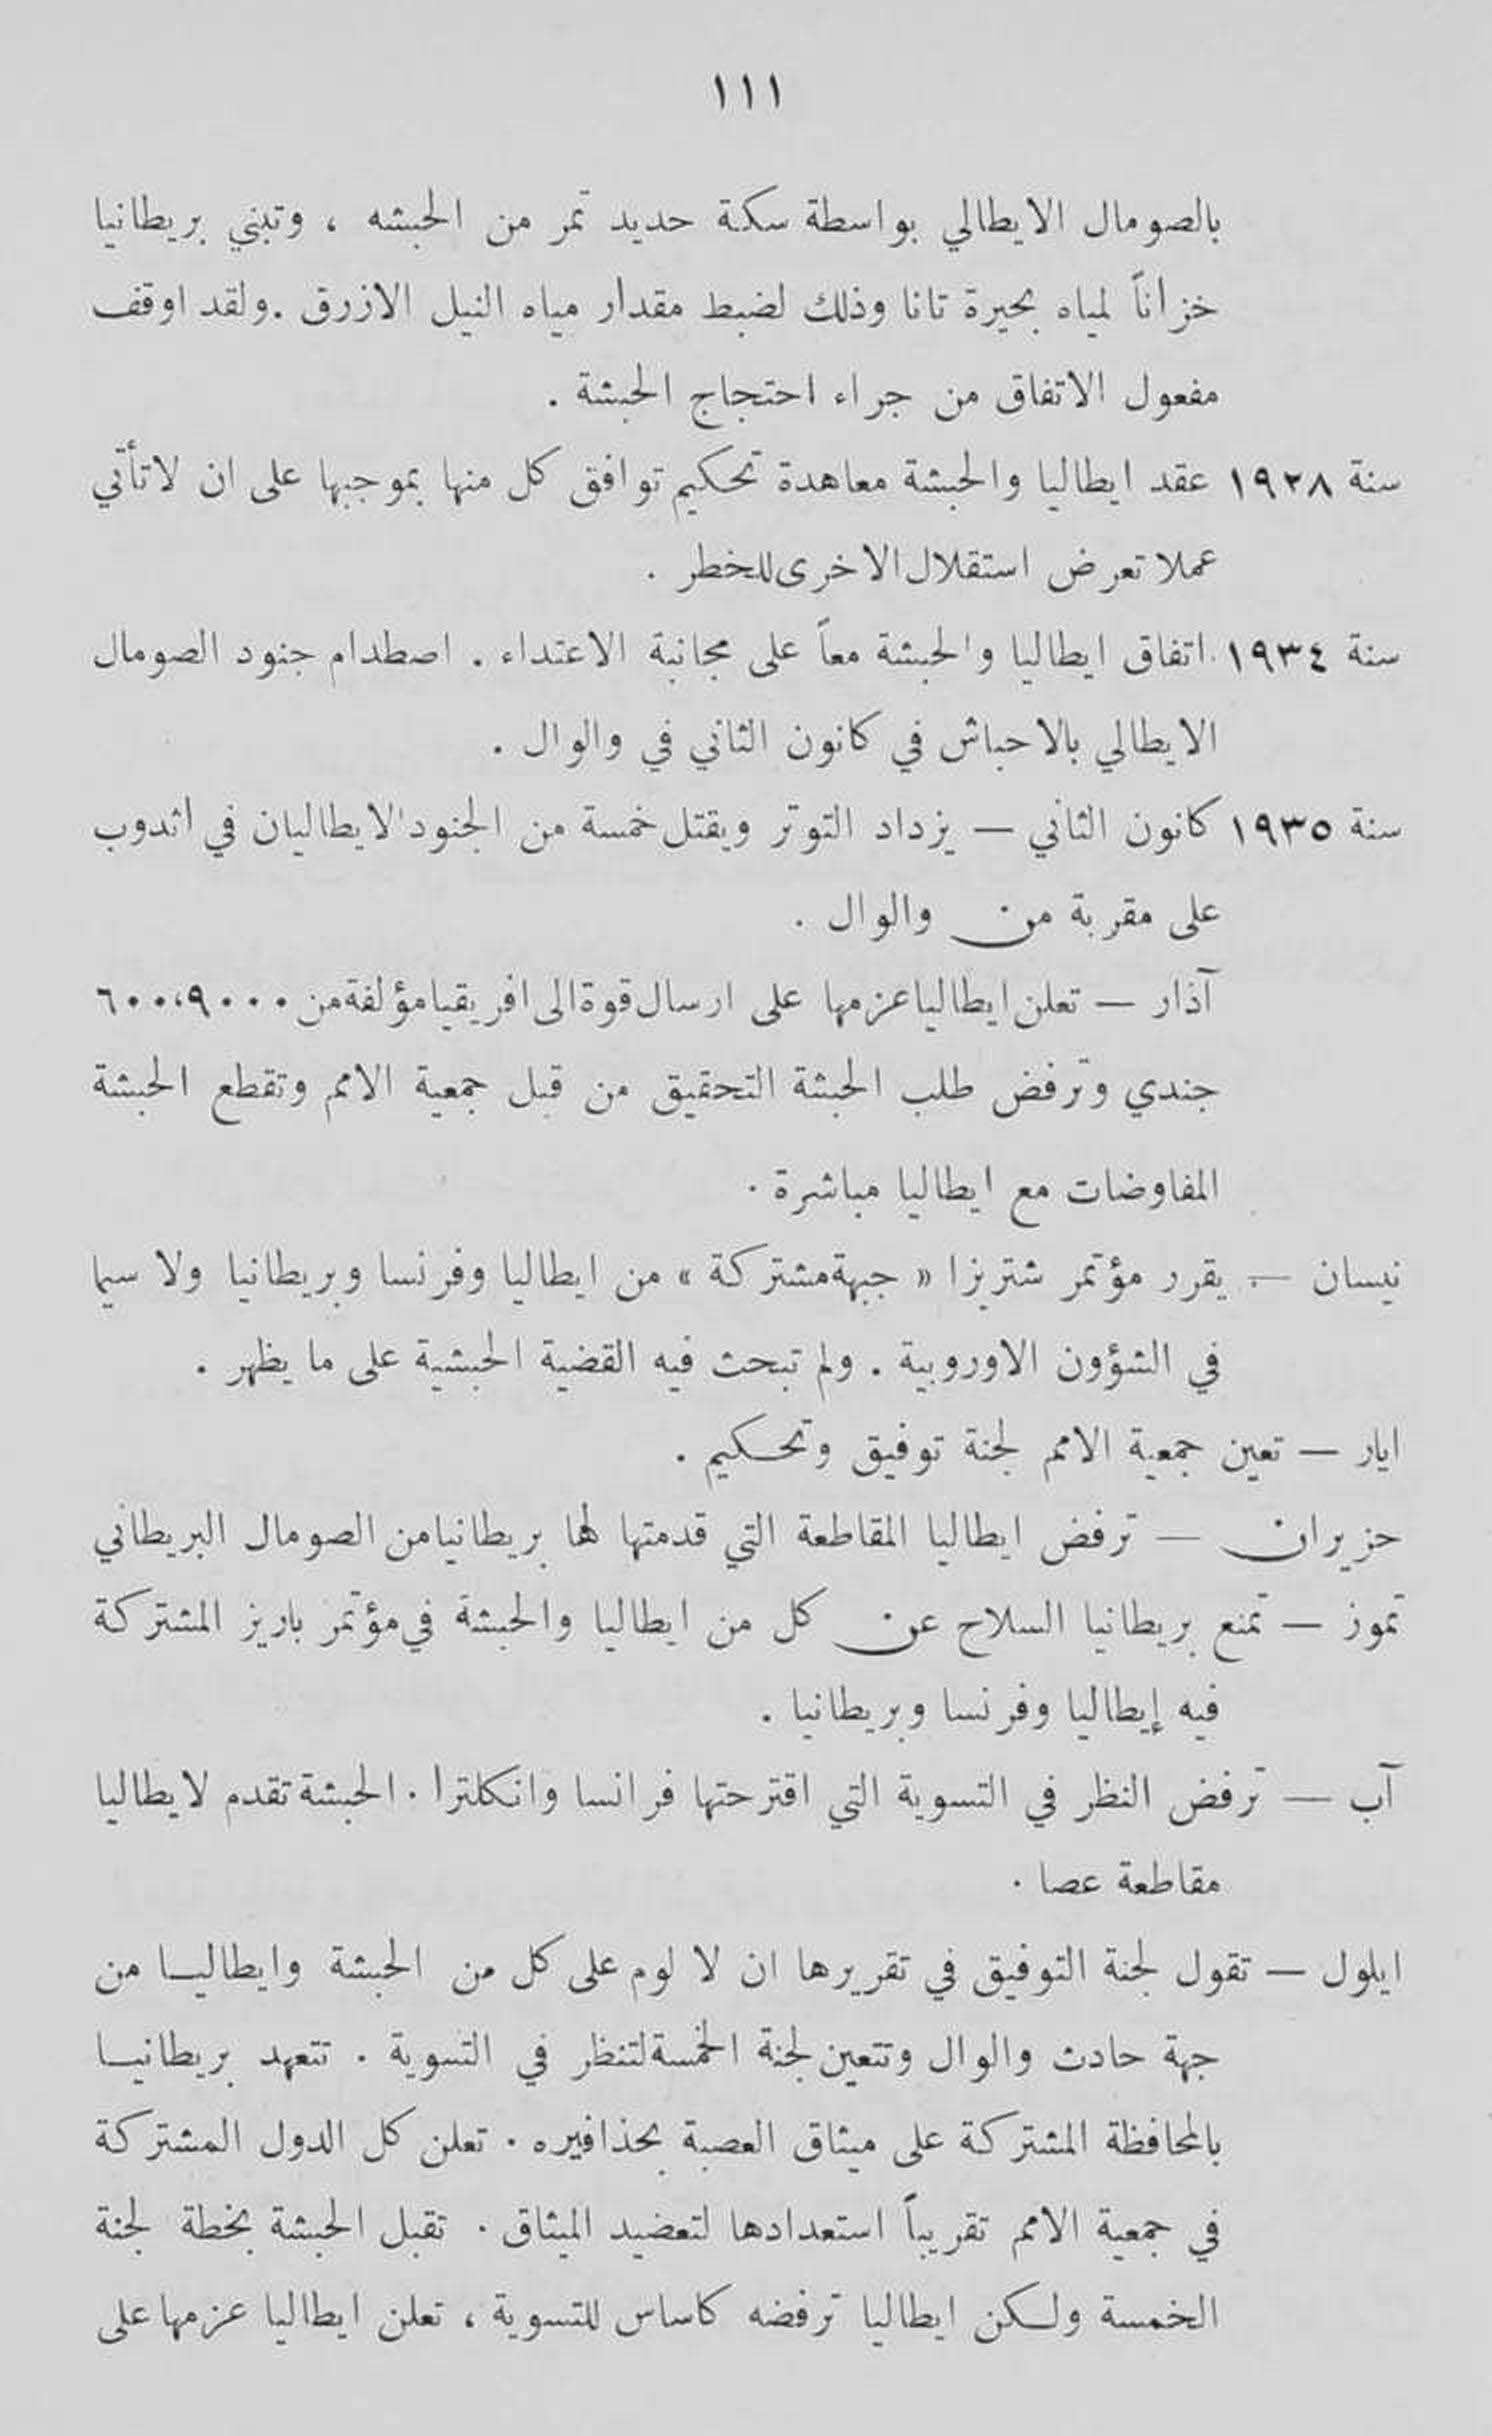 ١١١
بالصومال الايطالي بواسطة سكة حديد تمر من الحبشه ، وتبني بريطانيا
خزاناً لمياه بحيرة تانا وذلك لضبط مقدار مياه النيل الازرق . ولقد اوقف
مفعول الاتفاق من جراء احتجاج الحبشة .
سنة ١٩٢٨ عقد ايطاليا والحبشة معاهدة تحكيم توافق كل منها بموجبها على ان لا تأتي
عملا تعرض استقلال الاخرى للخطر .
سنة ١٩٣٤ اتفاق ايطاليا والحبشة معاً على مجانبة الاعتداء . اصطدام جنود الصومال
الايطالي بالاحباش في كانون الثاني في والوال .
سنة ١٩٣٥ كانون الثاني — يزداد التوتر ويقتل خمسة من الجنود الايطاليان في اندوب
على مقربة من والوال .
آذار — تعلن ايطاليا عزمها على ارسال قوة الى افريقيا مؤلفة من ٦٠٠،٩٠٠٠
جندي وترفض طلب الحبشة التحقيق من قبل جمعية الامم وتقطع الحبشة
المفاوضات مع ايطاليا مباشرة .
نيسان — يقرر مؤتمر شتريزا « جبهة مشتركة » من ايطاليا وفرنسا وبريطانيا ولا سيما
في الشؤون الاوروبية . ولم تبحث فيه القضية الحبشية على ما يظهر .
ايار — تعين جمعية الامم لجنة توفيق وتحكيم .
حزيران — ترفض ايطاليا المقاطعة التي قدمتها لها بريطانيا من الصومال البريطاني
تموز — تمنع بريطانيا السلاح عن كل من ايطاليا والحبشة في مؤتمر باريز المشتركة
فيه إيطاليا وفرنسا وبريطانيا .
آب — ترفض النظر في التسوية التي اقترحتها فرانسا وانكلترا . الحبشة تقدم لايطاليا
مقاطعة عصا .
ايلول — تقول لجنة التوفيق في تقريرها ان لا لوم على كل من الحبشة وايطاليا من
جهة حادث والوال وتتعين لجنة الخمسة لتنظر في التسوية . تتعهد بريطانيا
بالمحافظة المشتركة على ميثاق العصبة بحذافيره . تعلن كل الدول المشتركة
في جمعية الامم تقريباً استعدادها لتعضيد الميثاق . تقبل الحبشة بخطة لجنة
الخمسة ولكن ايطاليا ترفضه كاساس للتسوية ، تعلن ايطاليا عزمها على